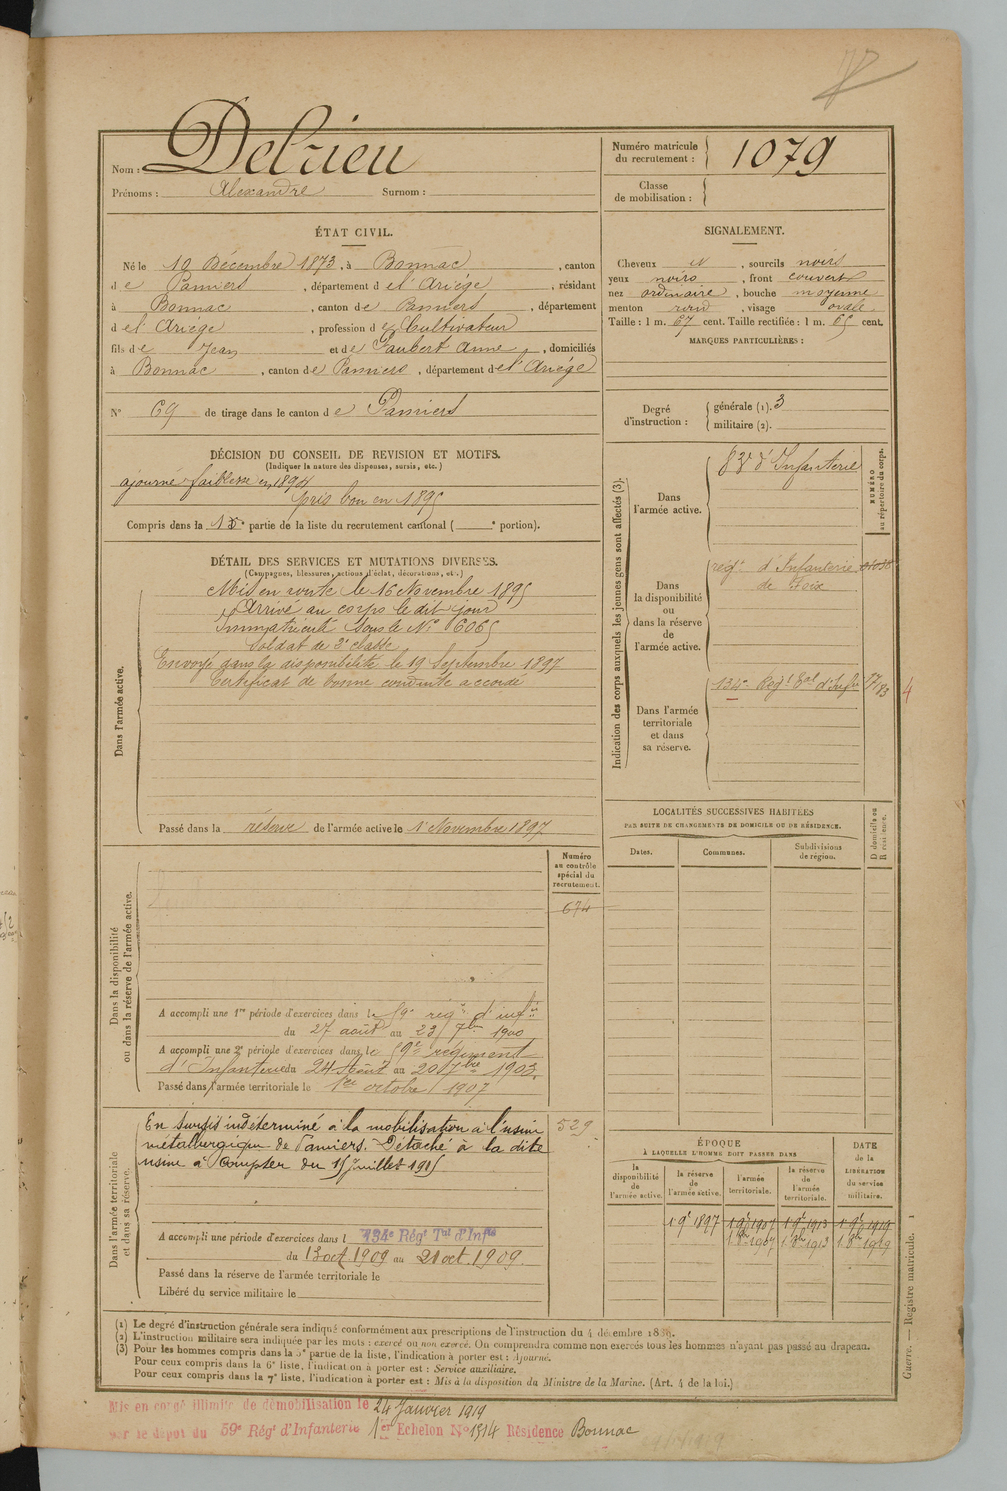 Nom : Delrieu
Prénoms : Alexandre Surnom :
Numéro matricule du recrutement : 1079
Classe de mobilisation :
ÉTAT CIVIL.
Né le 10 Décembre 1873, à Bonnac, canton
de Pamiers, département de l'Ariège, résidant
à Bonnac, canton de Pamiers, département
de l'Ariège, profession de Cultivateur
fils de Jean et de Gaubert Anne, domiciliés
à Bonnac, canton de Pamiers, département de l'Ariège
N° 69 de tirage dans le canton de Pamiers
SIGNALEMENT.
Cheveux et, sourcils noirs
yeux noirs, front couvert
nez ordinaire, bouche moyenne
menton rond, visage ovale.
Taille : 1 m. 67 cent. Taille rectifiée : 1 m. 65 cent.
MARQUES PARTICULIÈRES :
Degré d'instruction : générale (1). 3
militaire (2).
DÉCISION DU CONSEIL DE REVISION ET MOTIFS.
(Indiquer la nature des dispenses, sursis, etc.)
ajourné faiblesse en 1894
pris bon en 1895
Compris dans la 1e partie de la liste du recrutement cantonal ( e portion).
DÉTAIL DES SERVICES ET MUTATIONS DIVERSES.
(Campagnes, blessures, actions d'éclat, décorations, etc.)
Dans l'armée active.
Mis en route le 16 Novembre 1895
Arrivé au corps le dit jour
Immatriculé sous le N° 6065
Soldat de 2e classe
Envoyé dans la disponibilité le 19 Septembre 1897
Certificat de bonne conduite accordé
Passé dans la réserve de l'armée active le 1r Novembre 1897
Indication des corps auxquels les jeunes gens sont affectés (3).
NUMÉRO au répertoire du corps.
Dans l'armée active.
83e d'Infanterie
Dans la disponibilité ou dans la réserve de l'armée active.
régt d'Infanterie
de Foix
Dans l'armée territoriale et dans sa réserve.
134e Régt Tal d'Infie 17/83
4
LOCALITÉS SUCCESSIVES HABITÉES
PAR SUITE DE CHANGEMENTS DE DOMICILE OU DE RÉSIDENCE.
Dates. Communes. Subdivisions de région. D domicile ou R résidence.
Dans la disponibilité ou dans la réserve de l'armée active.
Numéro au contrôle spécial du recrutement.
674
A accompli une 1re période d'exercices dans le 59e régt d'infie
du 27 août au 23 7bre 1900
A accompli une 2e période d'exercices dans le 59e régiment
d'Infanterie du 24 août au 20 7bre 1903.
Passé dans l'armée territoriale le 1er octobre 1907
Dans l'armée territoriale et dans sa réserve.
En sursis indéterminé à la mobilisation à l'usine
métallurgique de Pamiers. Détaché à la dite
usine à compter du 15 juillet 1915
529
A accompli une période d'exercices dans l 134e Régt Tal d'Infie
du 13 oct 1909 au 21 oct. 1909.
Passé dans la réserve de l'armée territoriale le
Libéré du service militaire le
ÉPOQUE
À LAQUELLE L'HOMME DOIT PASSER DANS
la disponibilité de l'armée active. la réserve de l'armée active. l'armée territoriale. la réserve de l'armée territoriale.
DATE de la LIBÉRATION du service militaire.
1 9e 1897 1 9e 1907 1 9e 1913 1 9e 1919
1 8bre 1907 1 8bre 1913 1 8bre 1919
(1) Le degré d'instruction générale sera indiqué conformément aux prescriptions de l'instruction du 4 décembre 1889.
(2) L'instruction militaire sera indiquée par les mots : exercé ou non exercé. On comprendra comme non exercés tous les hommes n'ayant pas passé au drapeau.
(3) Pour les hommes compris dans la 5e partie de la liste, l'indication à porter est : Ajourné.
Pour ceux compris dans la 6e liste, l'indication à porter est : Service auxiliaire.
Pour ceux compris dans la 7e liste, l'indication à porter est : Mis à la disposition du Ministre de la Marine. (Art. 4 de la loi.)
Guerre. — Registre matricule. 1
Mis en congé illimité de démobilisation le 24 Janvier 1919
par le dépôt du 59e Régt d'Infanterie 1er Echelon N° 1514 Résidence Bonnac